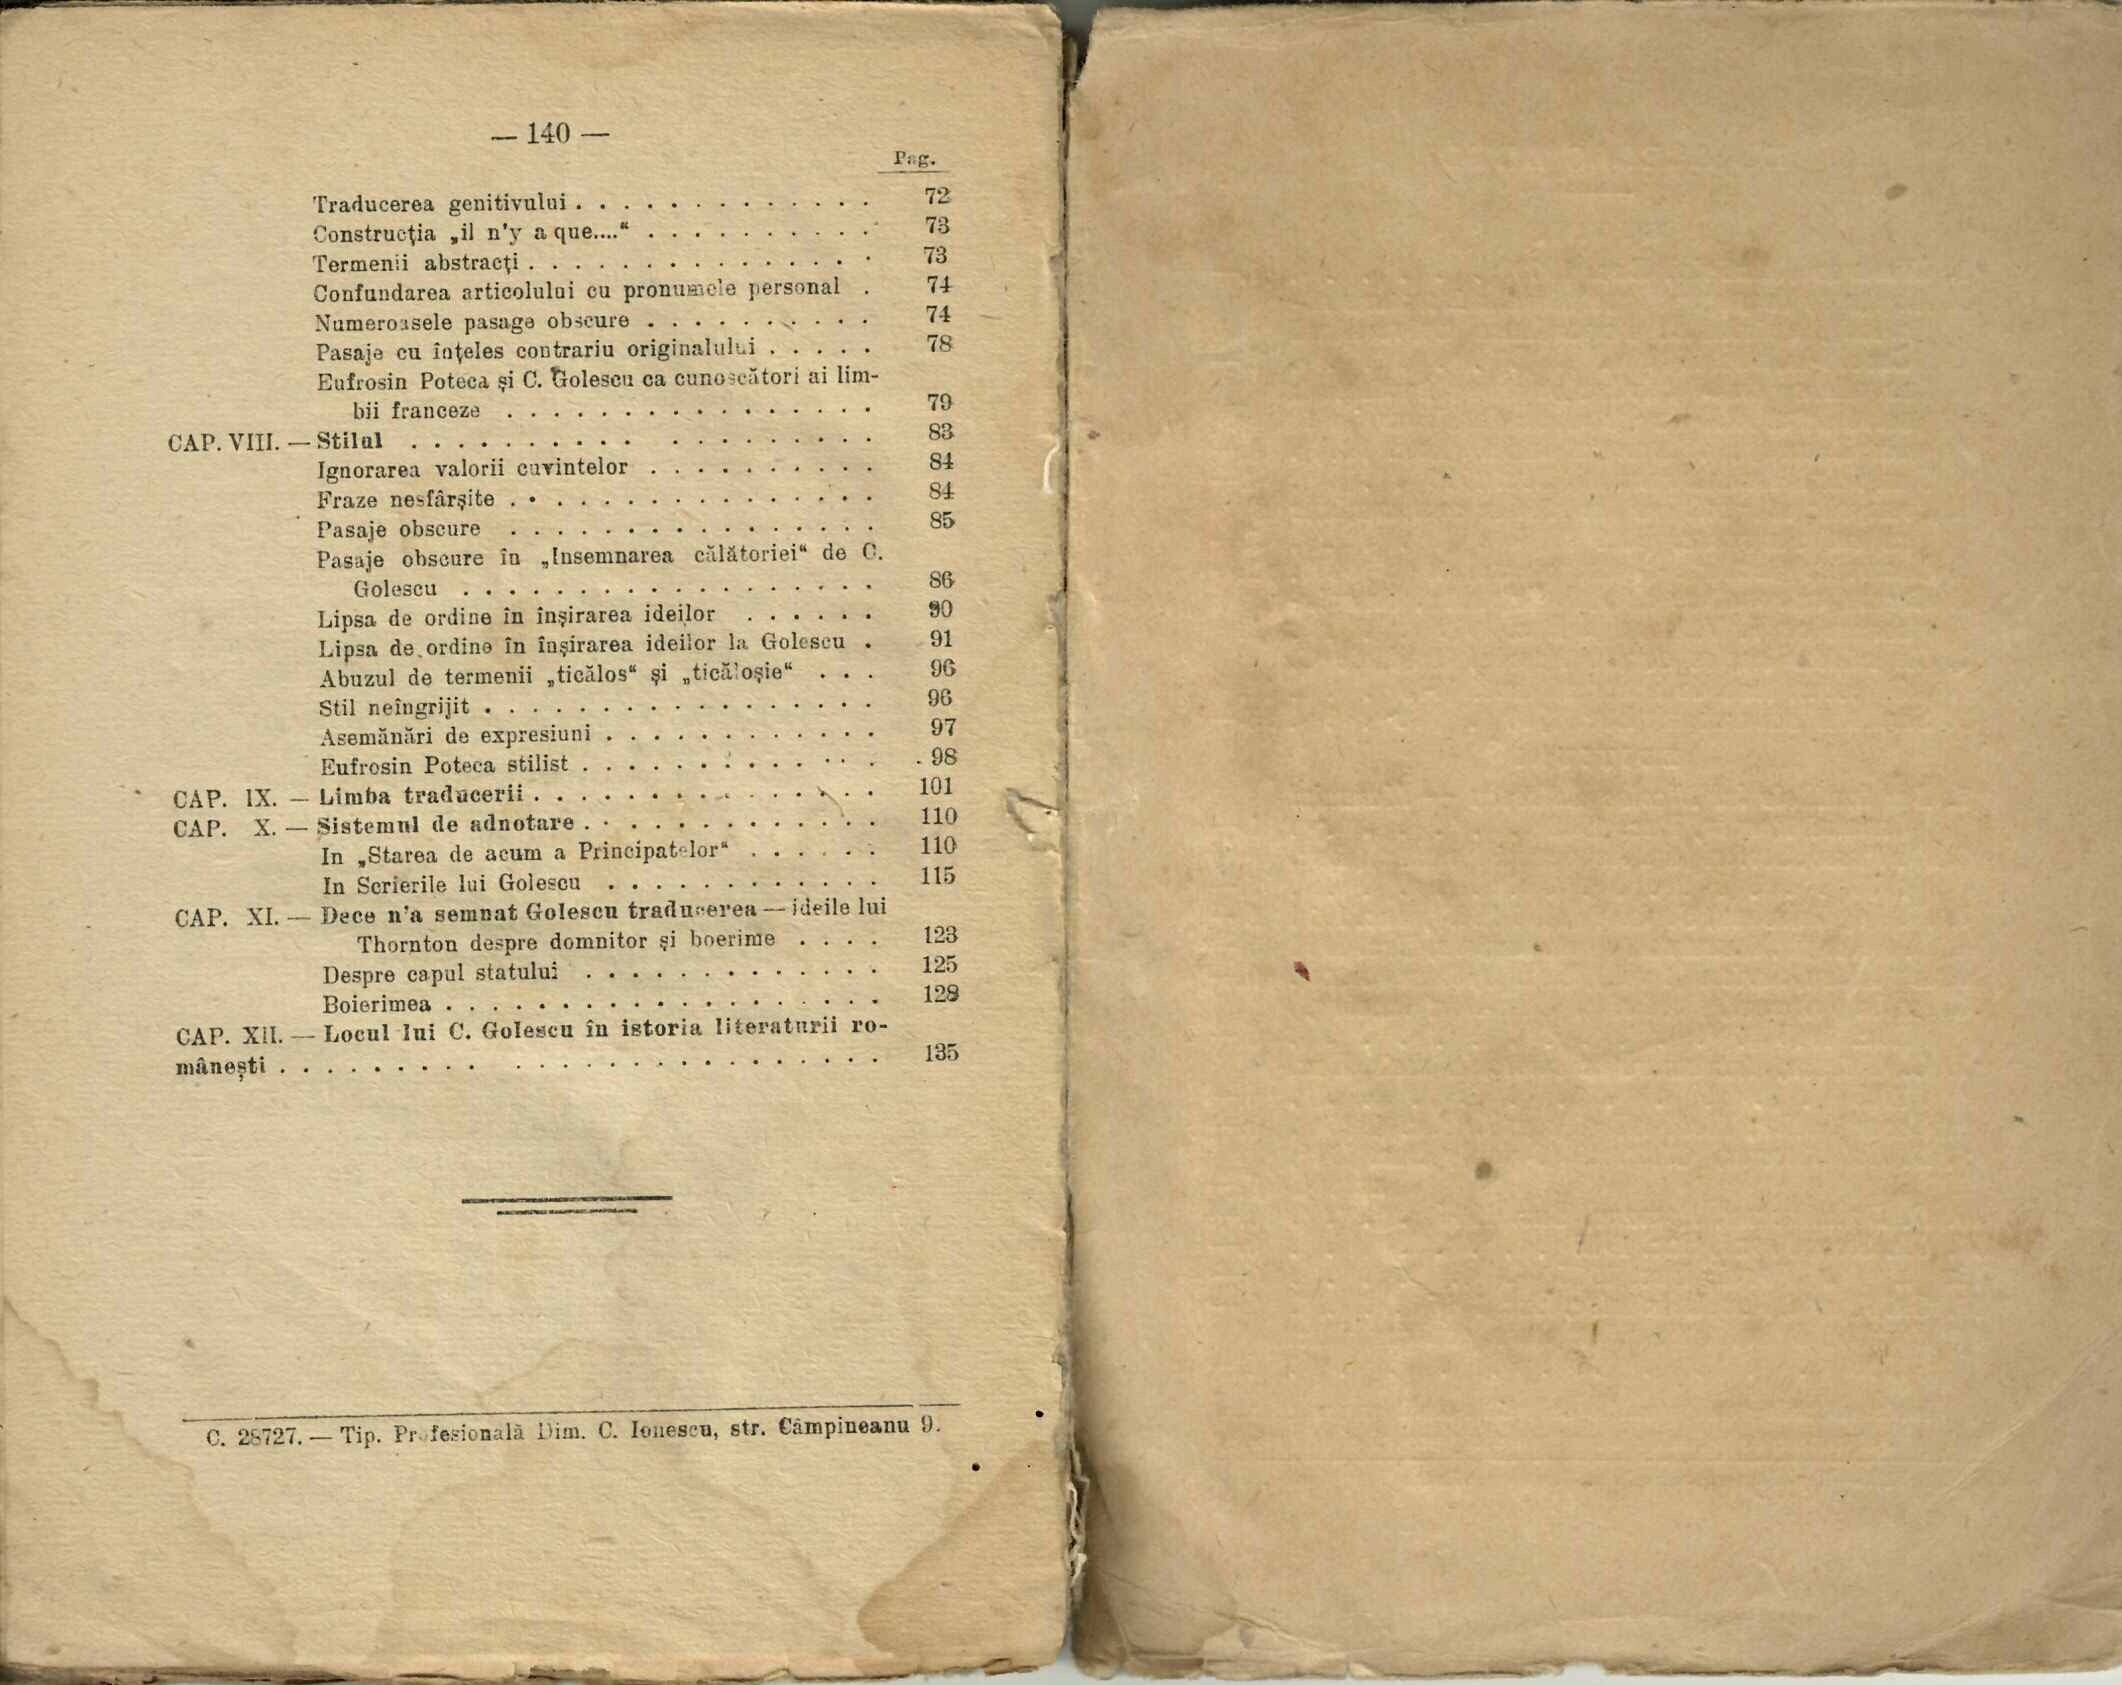 — 140 —
Pag.
Traducerea genitivului . . . . . . . . . . . . . 72
Construcția „il n'y a que....“ . . . . . . . . . . 73
Termenii abstracți . . . . . . . . . . . . . . . 73
Confundarea articolului cu pronumele personal . 74
Numeroasele pasage obscure . . . . . . . . . . 74
Pasaje cu înțeles contrariu originalului . . . . . 78
Eufrosin Poteca și C. Golescu ca cunoscători ai lim-
bii franceze . . . . . . . . . . . . . . . . 79
CAP. VIII. — Stilul . . . . . . . . . . . . . . . . . . . 83
Ignorarea valorii cuvintelor . . . . . . . . . . 84
Fraze nesfârșite . . . . . . . . . . . . . . . . 84
Pasaje obscure . . . . . . . . . . . . . . . . 85
Pasaje obscure în „Insemnarea călătoriei“ de C.
Golescu . . . . . . . . . . . . . . . . . . 86
Lipsa de ordine în înșirarea ideilor . . . . . . 90
Lipsa de ordine în înșirarea ideilor la Golescu . 91
Abuzul de termenii „ticălos“ și „ticăloșie“ . . . 96
Stil neîngrijit . . . . . . . . . . . . . . . . . 96
Asemănări de expresiuni . . . . . . . . . . . . 97
Eufrosin Poteca stilist . . . . . . . . . . . . . 98
CAP. IX. — Limba traducerii . . . . . . . . . . . . . . . 101
CAP. X. — Sistemul de adnotare . . . . . . . . . . . . . 110
In „Starea de acum a Principatelor“ . . . . . . 110
In Scrierile lui Golescu . . . . . . . . . . . . 115
CAP. XI. — Dece n'a semnat Golescu traducerea — ideile lui
Thornton despre domnitor și boerime . . . . 123
Despre capul statului . . . . . . . . . . . . . 125
Boierimea . . . . . . . . . . . . . . . . . . . 128
CAP. XII. — Locul lui C. Golescu în istoria literaturii ro-
mânești . . . . . . . . . . . . . . . . . . . . . . . . . 135
C. 28727. — Tip. Profesională Dim. C. Ionescu, str. Câmpineanu 9.